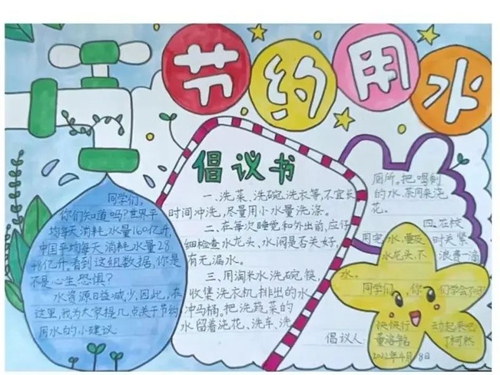 节约用水
倡议书
同学们,
你们知道吗?世界平
均每天消耗水量160亿升,
中国平均每天消耗水量28.
亿升,看到这组数据,你是
不是心生恐惧?
水资源日益减少,因此,在
这里,我为大家提几点关于节约
用水的小建议
一、洗菜、洗碗、洗衣等,不宜长
时间冲洗,尽量用小水量洗涤。
二、在每次睡觉和外出前,应仔
细检查水龙头,水闸是否关好,
有无漏水。
三、用淘米水洗碗、筷,
收集洗衣机排出的水
冲马桶,把洗蔬菜的
水留着浇花、洗车、洗
厕所,把喝剩
的水、茶用来浇
花。
四、在校
用完水,
时关紧
水龙头,不
浪费一滴
水。
同学们,你们学会了
快快行动起来吧
倡议人:
2022年4月8日